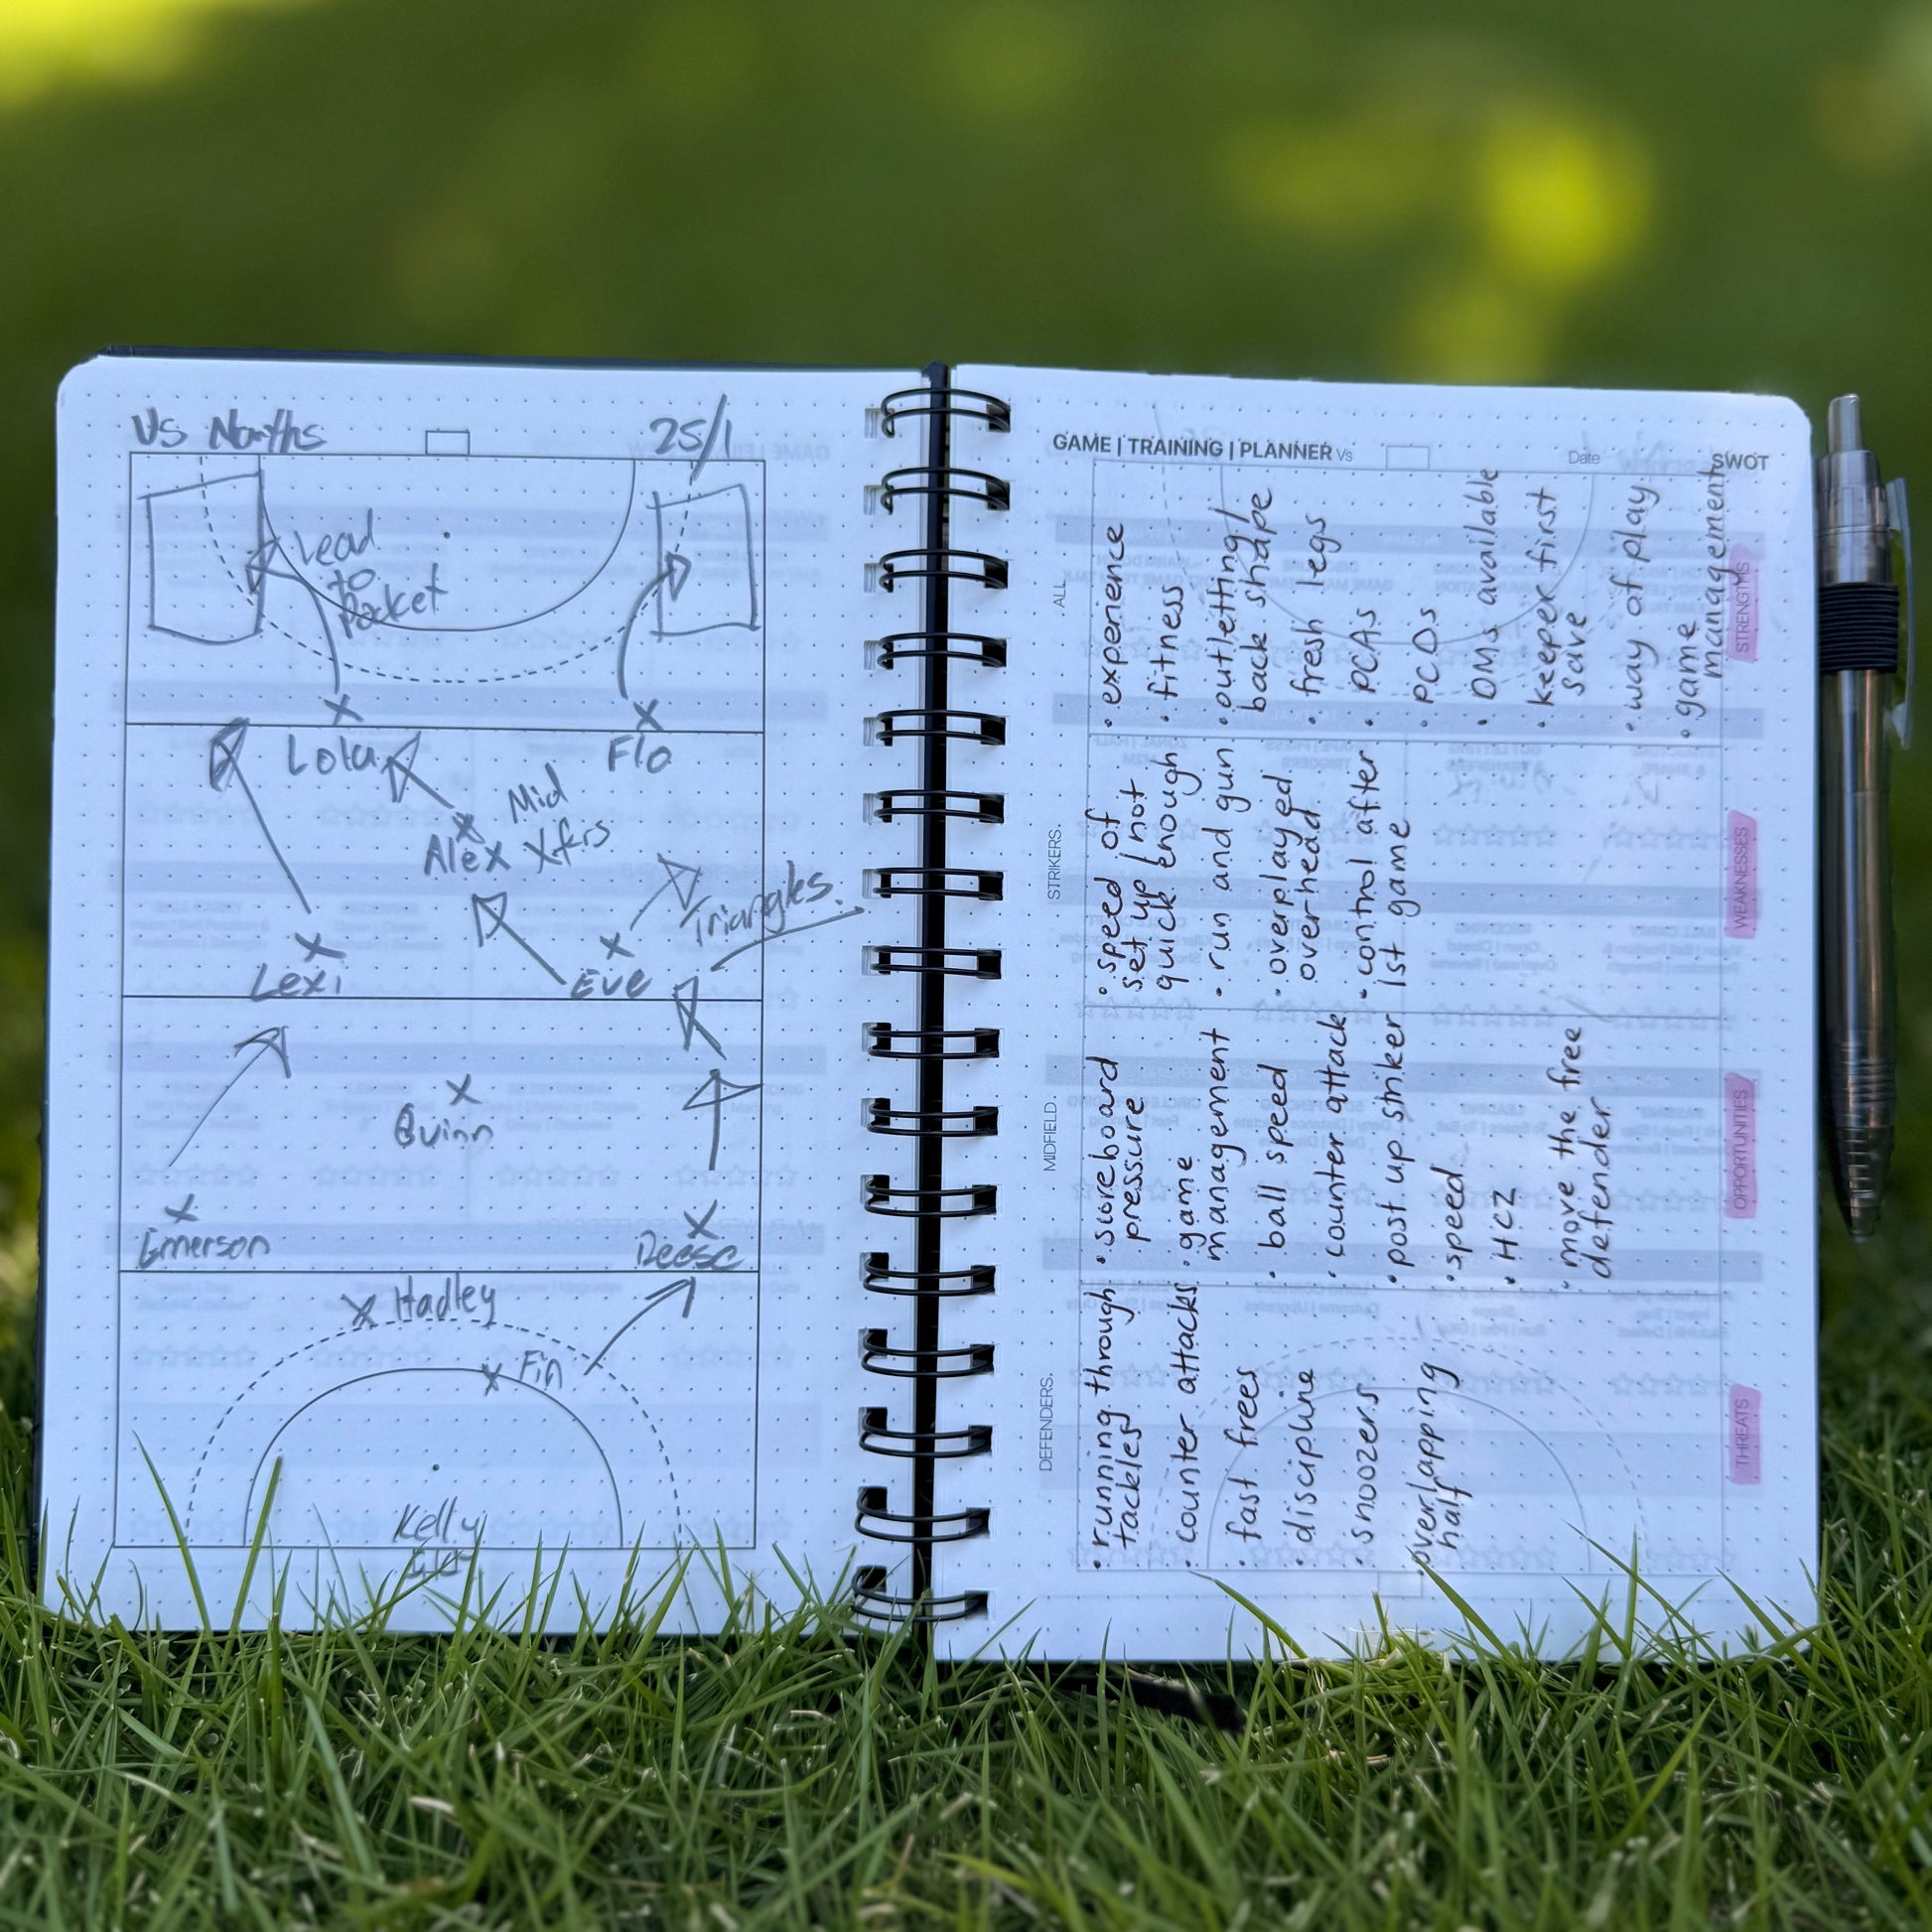 Vs Norths
25/1
Lead
to
Pocket
Lola
Flo
Mid
Alex Xfrs
Triangles.
Lexi
Eve
Quinn
Emerson
Reese
Hadley
Fin
Kelly
GAME | TRAINING | PLANNER Vs
Date
SWOT
ALL.
STRIKERS.
MIDFIELD.
DEFENDERS.
STRENGTHS
• experience
• fitness
• outletting/
back shape
• fresh legs
• PCAs
• PCDs
• DMs available
• keeper first
save
• way of play
• game
management
WEAKNESSES
• speed of
set up/not
quick enough
• run and gun
• overplayed
overhead
• control after
1st game
OPPORTUNITIES
• scoreboard
pressure
• game
management
• ball speed
• counter attack
• post up striker
• speed
• HCZ
• move the free
defender
THREATS
• running through
tackles
• counter attacks
• fast frees
• discipline
• snoozers
• overlapping
half